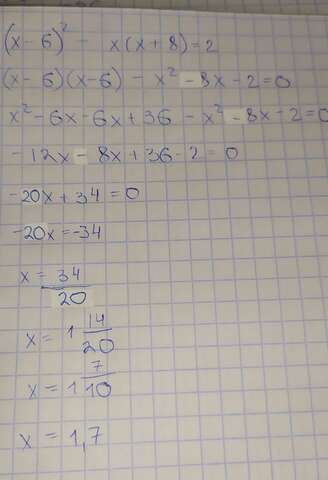 (x-6)² - x(x+8)=2
(x-6)(x-6) - x²-8x-2=0
x²-6x-6x+36 -x²-8x-2=0
-12x-8x+36-2=0
-20x+34=0
-20x=-34
x=34/20
x=1 14/20
x=1 7/10
x=1,7